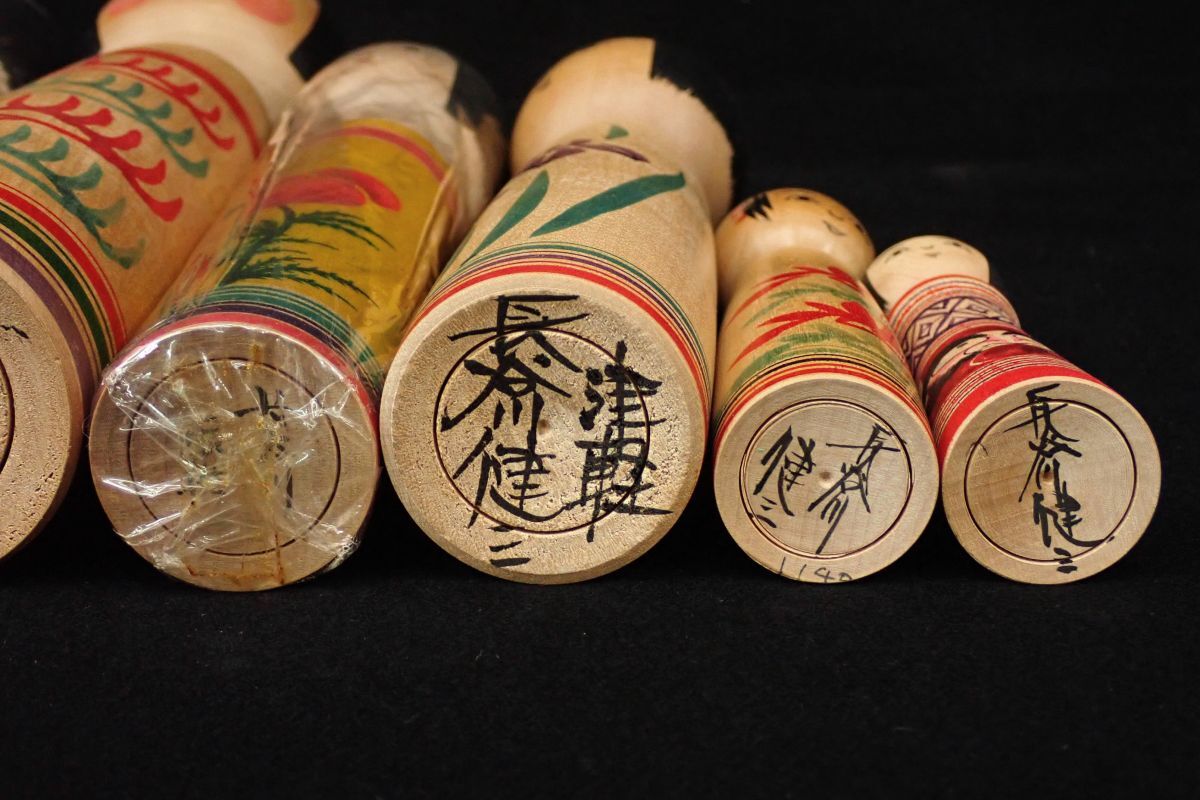 津軽
長谷川健三
長谷川
健三
1140
長谷川健三